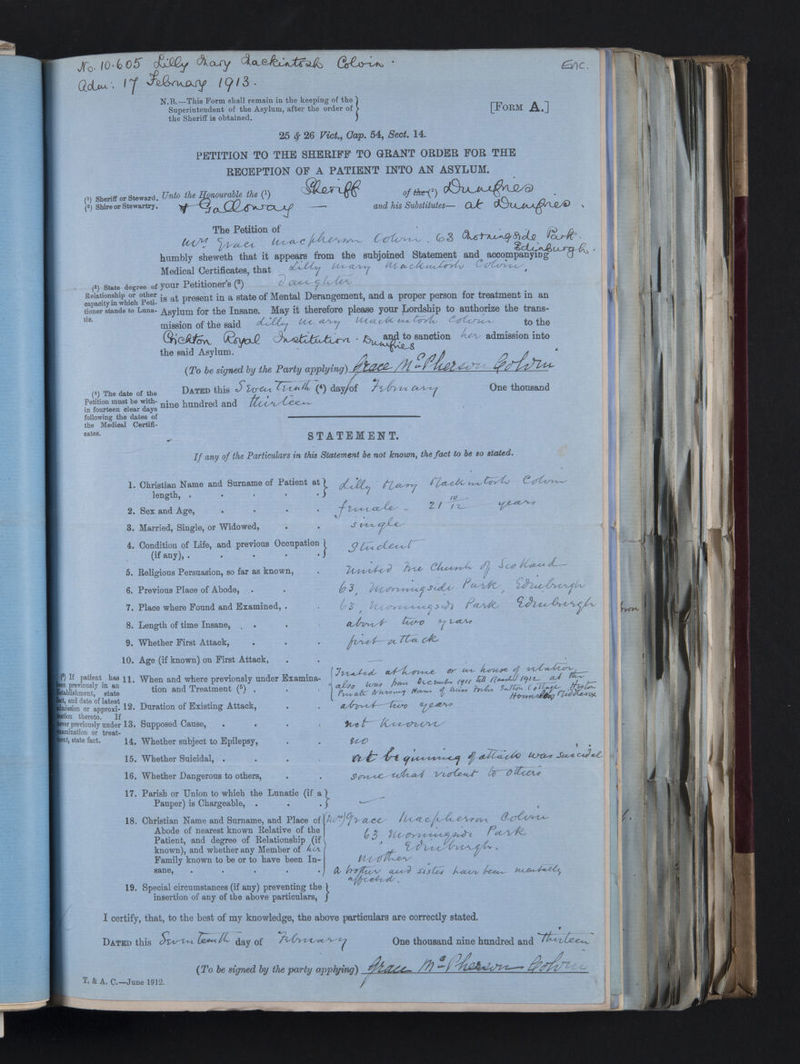 No. 10.605 Lilly Mary Mackintosh Colvin. Enc.
Adm. 17 February 1913.
N.B.—This Form shall remain in the keeping of the
Superintendent of the Asylum, after the order of
the Sheriff is obtained.
[FORM A.]
25 & 26 Vict., Cap. 54, Sect. 14.
PETITION TO THE SHERIFF TO GRANT ORDER FOR THE
RECEPTION OF A PATIENT INTO AN ASYLUM.
(1) Sheriff or Steward.
(2) Shire or Stewartry.
Unto the Honourable the (1) Sheriff of the (2) Dumfries
& Galloway — and his Substitutes— at Dumfries.
The Petition of
Mrs Grace Macpherson Colvin. 63 Morningside Park.
Edinburgh.
humbly sheweth that it appears from the subjoined Statement and accompanying
Medical Certificates, that Lilly Mary Mackintosh Colvin,
(3) State degree of
Relationship or other
capacity in which Peti-
tioner stands to Luna-
tic.
your Petitioner's (3) daughter
is at present in a state of Mental Derangement, and a proper person for treatment in an
Asylum for the Insane. May it therefore please your Lordship to authorize the trans-
mission of the said Lilly Mary Mackintosh Colvin to the
Crichton Royal Institution. Dumfries and to sanction her admission into
the said Asylum.
(To be signed by the Party applying) Grace McPherson Colvin
(4) The date of the
Petition must be with-
in fourteen clear days
following the dates of
the Medical Certifi-
cates.
DATED this Seventeenth (4) day of February One thousand
nine hundred and thirteen
STATEMENT.
If any of the Particulars in this Statement be not known, the fact to be so stated.
1. Christian Name and Surname of Patient at
length, . Lilly Mary Mackintosh Colvin
2. Sex and Age, female - 21 10/12 years
3. Married, Single, or Widowed, single
4. Condition of Life, and previous Occupation
(if any), . Student
5. Religious Persuasion, so far as known, United Free Church of Scotland
6. Previous Place of Abode, 63, Morningside Park, Edinburgh
7. Place where Found and Examined, . 63, Morningside Park Edinburgh
8. Length of time Insane, about two years
9. Whether First Attack, first attack
10. Age (if known) on First Attack,
(5) If patient has
been previously in an
Establishment, state
fact, and date of latest
admission or approxi-
mation thereto. If
never previously under
examination or treat-
ment, state fact.
11. When and where previously under Examina-
tion and Treatment (5) . Treated at home or in house of relation
also was from December 1911 till March 1912 at the
Private Nursing Home of Miss
Hounslow Middlesex
12. Duration of Existing Attack, about two years
13. Supposed Cause, not known
14. Whether subject to Epilepsy, no
15. Whether Suicidal, . at beginning of attack was suicidal
16. Whether Dangerous to others, somewhat violent to others
17. Parish or Union to which the Lunatic (if a
Pauper) is Chargeable, . —
18. Christian Name and Surname, and Place of
Abode of nearest known Relative of the
Patient, and degree of Relationship (if
known), and whether any Member of her
Family known to be or to have been In-
sane, . Mrs Grace Macpherson Colvin
63 Morningside Park
Edinburgh.
Mother
A brother and sister have been mentally
affected.
19. Special circumstances (if any) preventing the
insertion of any of the above particulars,
I certify, that, to the best of my knowledge, the above particulars are correctly stated.
DATED this Seventeenth day of February One thousand nine hundred and Thirteen
(To be signed by the party applying) Grace McPherson Colvin
T. & A. C.—June 1912.